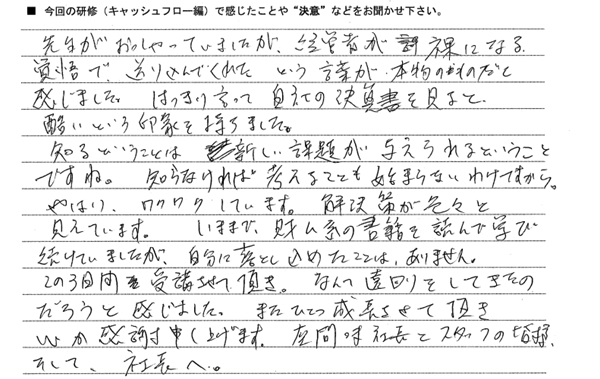 ■ 今回の研修（キャッシュフロー編）で感じたことや“決意”などをお聞かせ下さい。
先生がおっしゃっていましたが、経営者が裸になる
覚悟で、送り込んでくれた という言葉が、本物のものだと
感じました。 はっきり言って 自社の決算書を見ると、
酷いという印象を持ちました。
知るということは 新しい課題が与えられるということ
ですね。 知らなければ考えることも始まらないわけですから。
やはり、ワクワクしています。 解決策が色々と
見えています。 いままで、財ム系の書籍を読んで学び
続けていましたが、自分に落とし込めたことは、ありません。
この3日間を受講させて頂き。 なんて遠回りをしてきたの
だろうと感じました。 またひとつ成長させて頂き
心から感謝申し上げます。 社長とスタッフの皆様、
そして、社長へ。